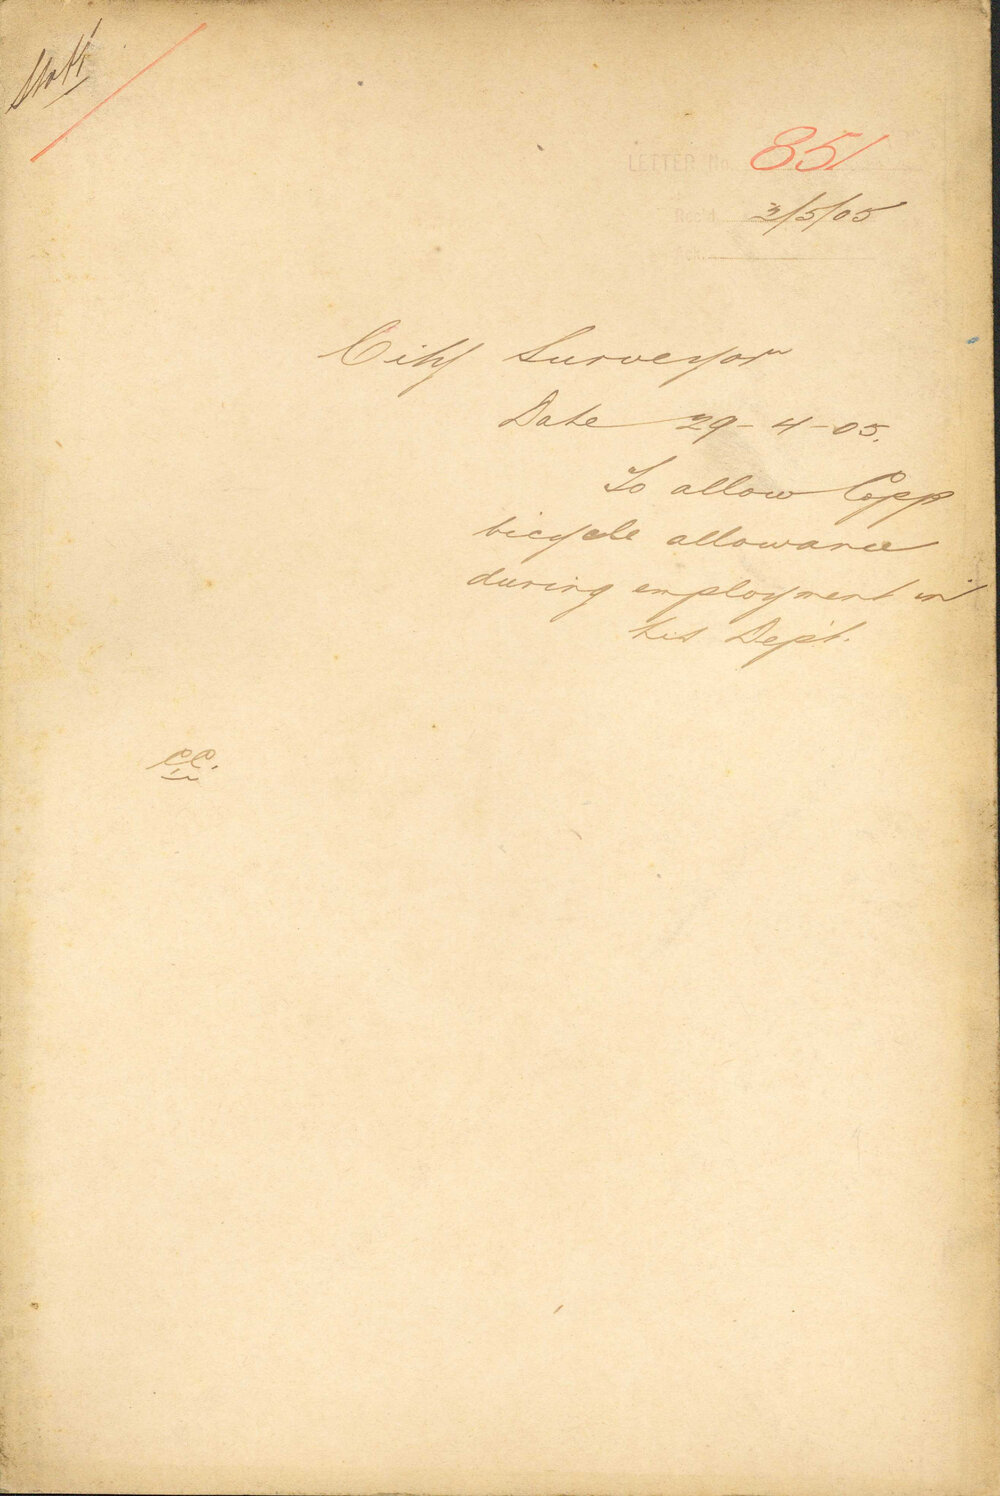 Staff
LETTER No. 851
Rec'd 3/5/05
Ack.
City Surveyor
Date 29-4-05.
To allow Copp
bicycle allowance
during employment in
his Dept.
CC.